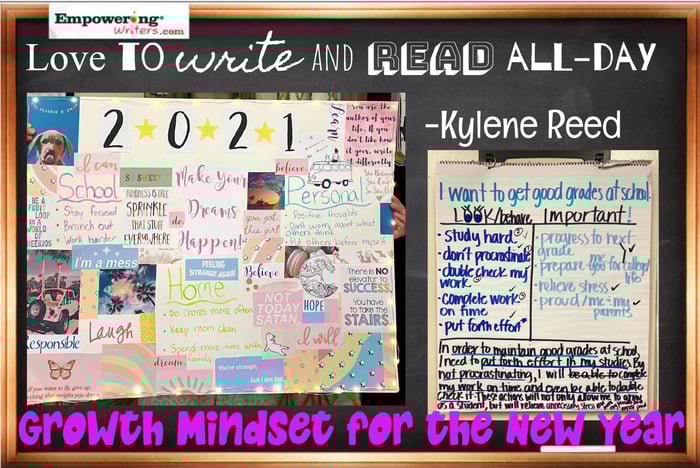 Empowering®
Writers.com
LOVE TO write AND READ ALL-DAY
-Kylene Reed
2★0★2★1
You are the
author of your
life. If you
don't like how
it goes, write
it differently.
I can
School
• Stay focused
• Branch out
• Work harder
SO SWEET
KINDNESS IS FREE
SPRINKLE
THAT STUFF
EVERYWHERE
Make Your
Dreams
Happen!
do
believe
you got
this girl
Learn
She Believed
She Could
Personal
• Positive thoughts
• Don't worry about what
others think
• Put others before myself
BE A
FRUIT
LOOP
IN A
WORLD
OF
CHEERIOS
I'm a mess
FEELING
STRANGE AGAIN
Believe
Home
• Do chores more often
• Keep room clean
• Spend more time with
family
NOT
TODAY
SATAN.
HOPE
THERE IS NO
ELEVATOR TO
SUCCESS.
YOU HAVE
TO TAKE THE
STAIRS
I will
Laugh
Responsible
If you want to fly,
give up everything
that weighs you down
dream
You're strange,
but I am too.
I want to get good grades at school.
LOOK/behave
Important!
• study hard
• don't procrastinate
• double check my
work
• complete work
on time
• put forth effort
• progress to next
grade
• prepare you for college/
life
• relieve stress
• proud/me + my
parents
In order to maintain good grades at school,
I need to put forth effort in my studies. By
not procrastinating, I will be able to complete
my work on time and even be able to double
check it. These actions will not only allow me to grow
as a student, but will relieve unnecessary stress
Growth Mindset for the New Year